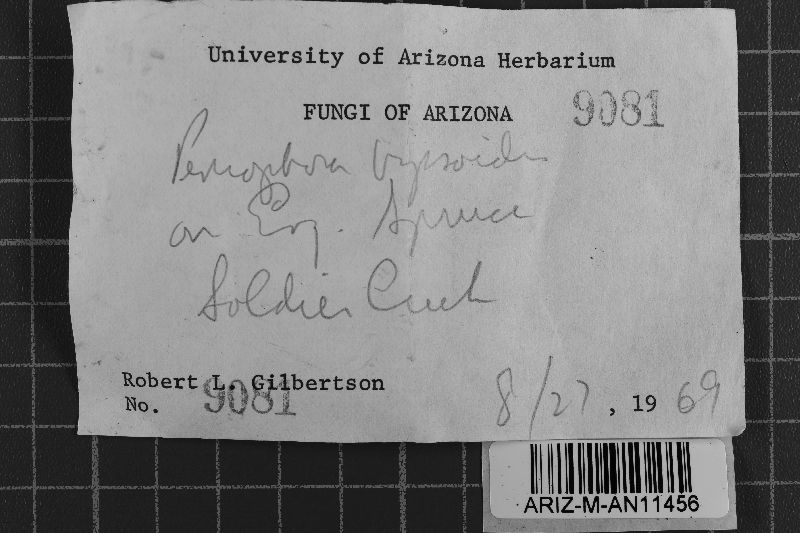 University of Arizona Herbarium
FUNGI OF ARIZONA 9081
Peniophora byssoides
on Eng. Spruce
Soldier Creek
Robert L. Gilbertson
No. 9081
8/27, 1969
ARIZ-M-AN11456